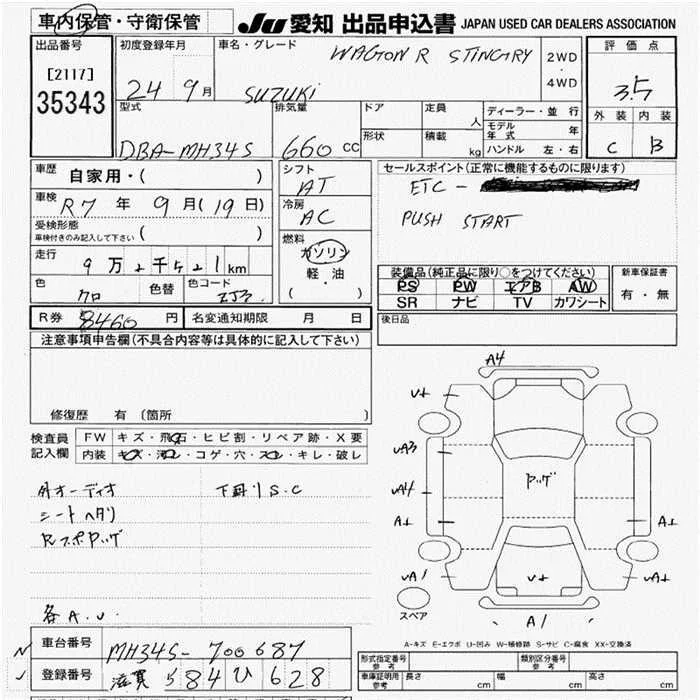 車内保管・守衛保管
JU 愛知 出品申込書 JAPAN USED CAR DEALERS ASSOCIATION
出品番号
[2117]
35343
初度登録年月
24 9月
車名・グレード
WAGON R STINGRY
SUZUKI
2WD
4WD
評価点
3.5
外装 内装
C B
型式
DBA-MH34S
排気量
660 CC
ドア
形状
定員 人
積載 kg
ディーラー・並行
モデル年式 年
ハンドル 左・右
車歴
自家用・( )
車検
R7 年 9月(19日)
受検形態
車検付きのみ記入して下さい ( )
走行
9万 2千5 21 km
色
クロ
色替
色コード
ZJ3
シフト
AT
冷房
AC
燃料
ガソリン
軽・油
( ・ )
セールスポイント(正常に機能するものに限ります)
ETC -
PUSH START
装備品(純正品に限り○をつけてください)
PS PW エアB AW
SR ナビ TV カワシート
新車保証書
有・無
R券 8460 円
名変通知期限 月 日
後日品
注意事項申告欄(不具合内容等は具体的に記入して下さい)
修復歴 有 (箇所 )
検査員
記入欄
FW キズ・飛石・ヒビ割・リペア跡・X要
内装 キズ・汚レ・コゲ・穴・スレ・キレ・破レ
外オーディオ 下廻りS.C
シートヘタリ
Rスポヤッゲ
各A.U.
A4
U+
UA3
UA4
A⊥
UA1
ヤッゲ
U+
A⊥
UA⊥
A1
スペア
A-キズ E-エクボ U-凹み W-補修跡 S-サビ C-腐食 XX-交換済
車台番号 MH34S-700687
登録番号 滋賀 584 ひ 628
形式指定番号
参考
類別区分番号
参考
車庫証明用
参考
長さ cm 幅 cm 高さ cm